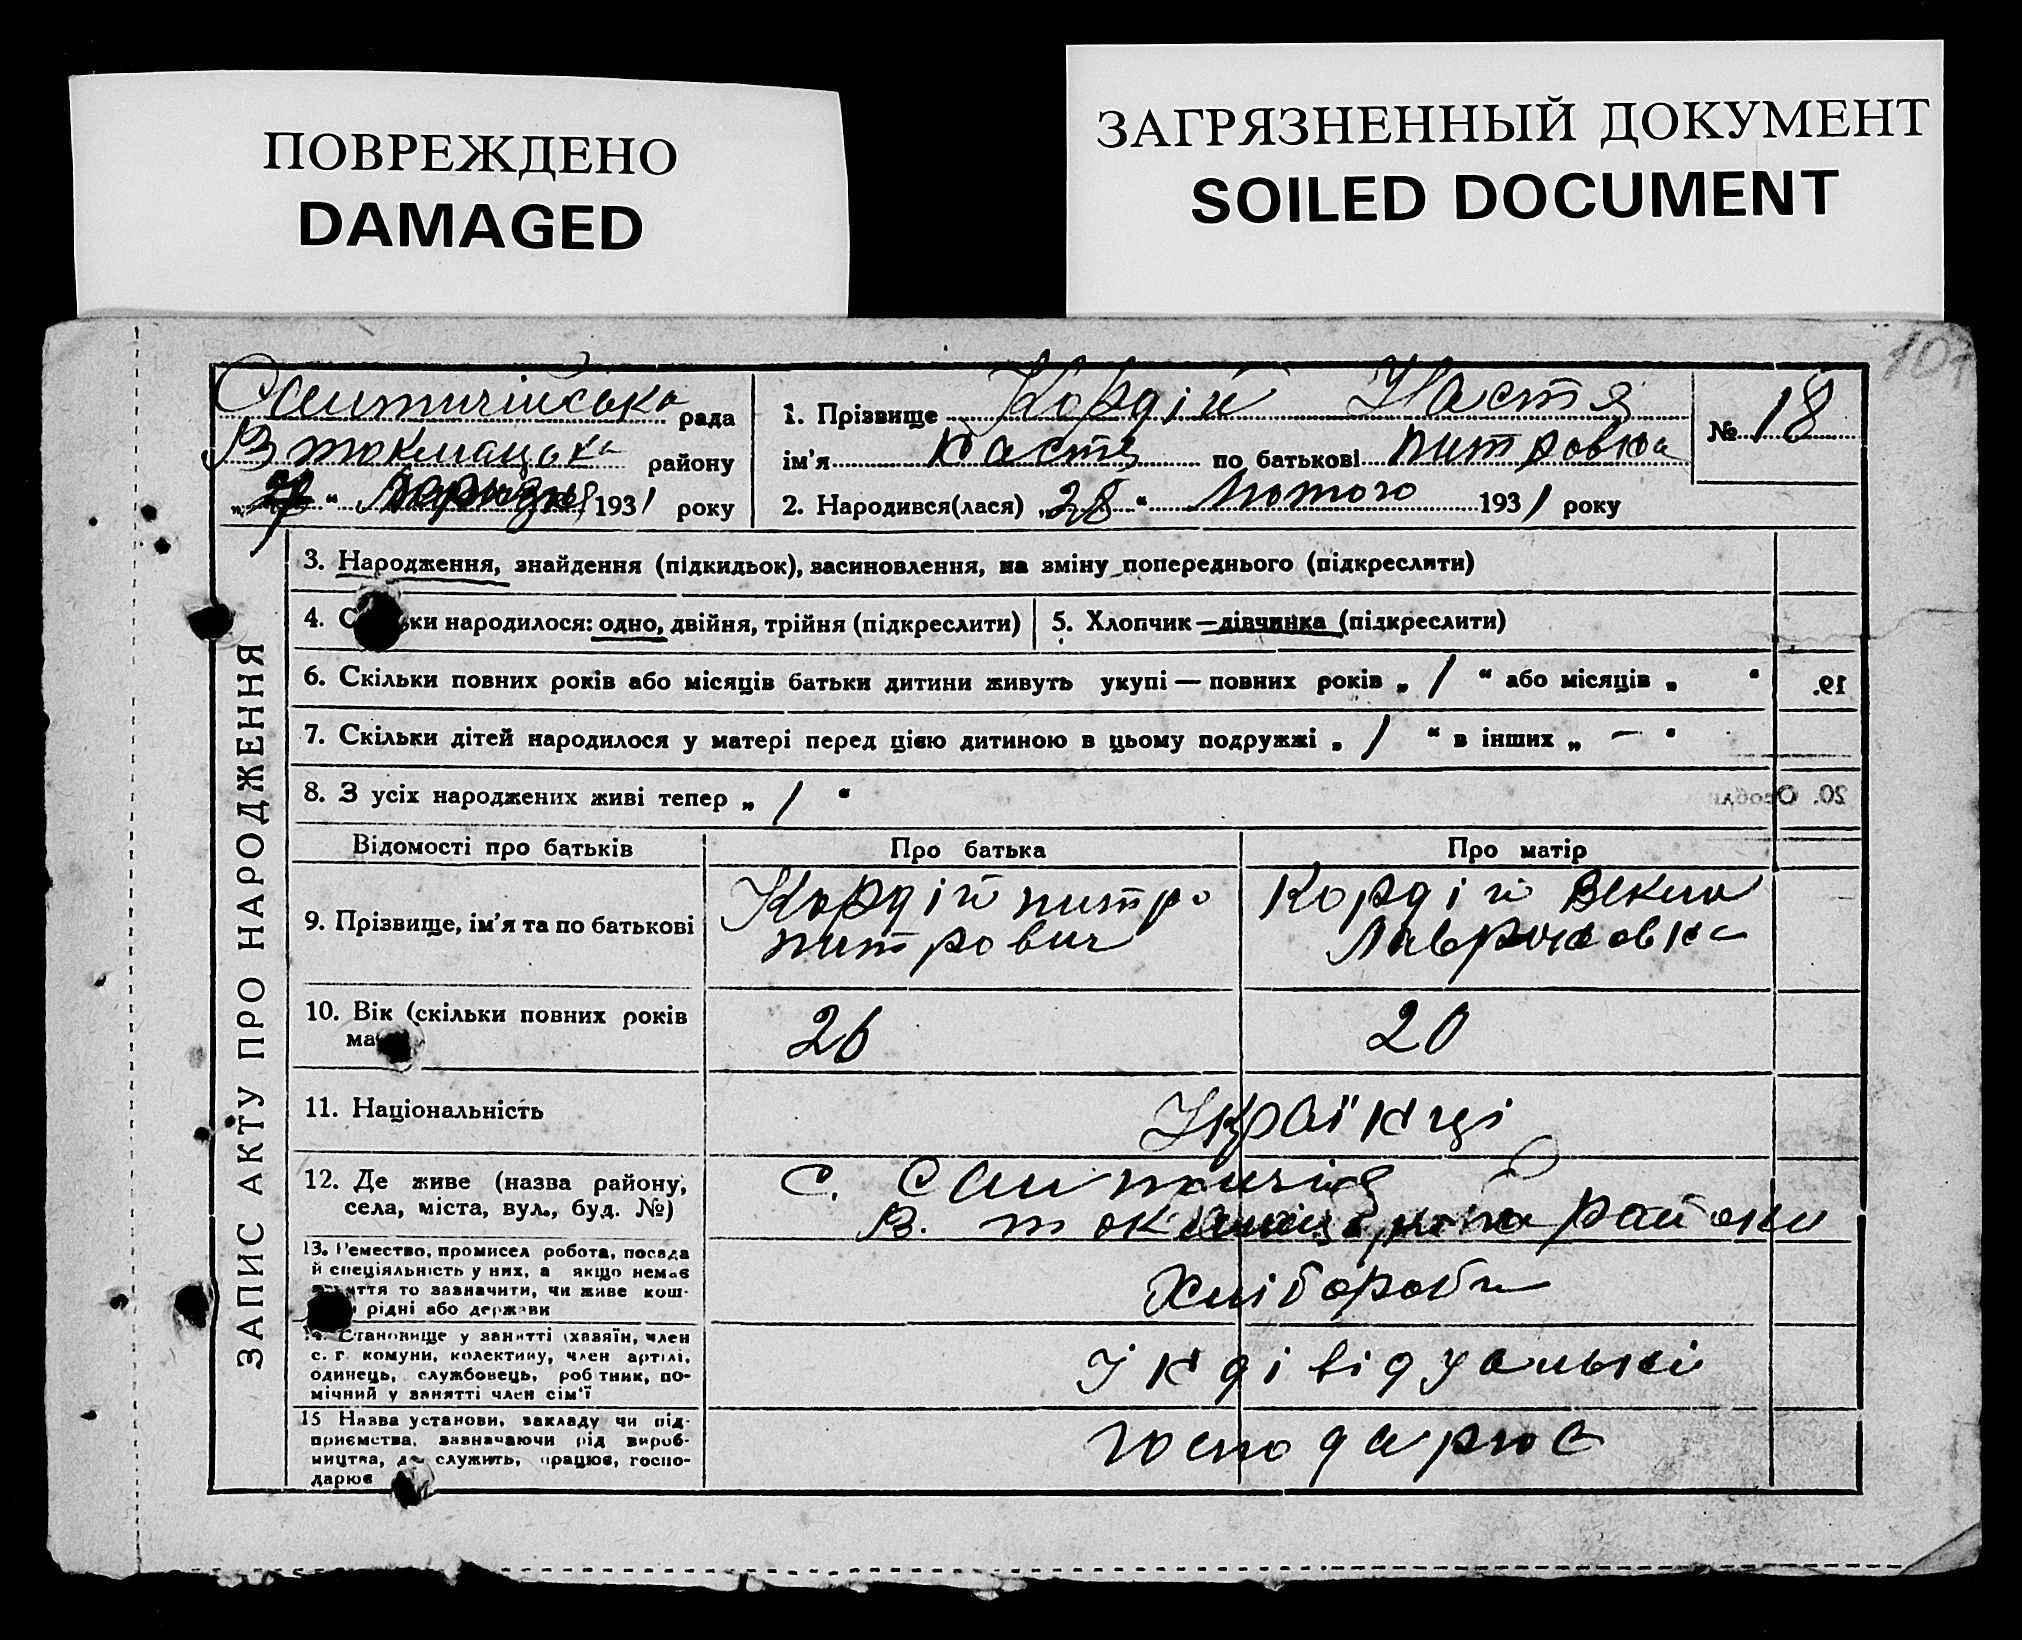 ПОВРЕЖДЕНО
DAMAGED
ЗАГРЯЗНЕННЫЙ ДОКУМЕНТ
SOILED DOCUMENT
107
рада
В токмацька району
193 1 року
1. Прізвище Кордій Настя
ім'я Настя по батькові питровна
2. Народився(лася) „28“ Лютого 193 1 року
№ 18
ЗАПИС АКТУ ПРО НАРОДЖЕННЯ
3. Народження, знайдення (підкидьок), засиновлення, на зміну попереднього (підкреслити)
4. С ьки народилося: одно, двійня, трійня (підкреслити)
5. Хлопчик — дівчинка (підкреслити)
6. Скільки повних років або місяців батьки дитини живуть укупі — повних років „ 1 “ або місяців „ “
19.
7. Скільки дітей народилося у матері перед цією дитиною в цьому подружжі „ 1 “ в інших „ — “
8. З усіх народжених живі тепер „ 1 “
20. Особли
Відомості про батьків
Про батька
Про матір
9. Прізвище, ім'я та по батькові
Кордій питро
питрович
Кордій Векла
10. Вік (скільки повних років
ма
26
20
11. Національність
Українці
12. Де живе (назва району,
села, міста, вул., буд. №)
с.
В. району
13. Ремество, промисел робота, посада
й спеціяльність у них, а якщо немає
яття то зазначити, чи живе кош-
рідні або держави
Хлібороби
14. Становище у занятті (хазяїн, член
с. г. комуни, колективу, член артілі,
одинець, службовець, робтник, по-
мічний у занятті член сім'ї
Індівідуальні
15 Назва установи, закладу чи під-
приємства, зазначаючи рід вироб-
ництва, де служить, працює, госпо-
дарює
господарює